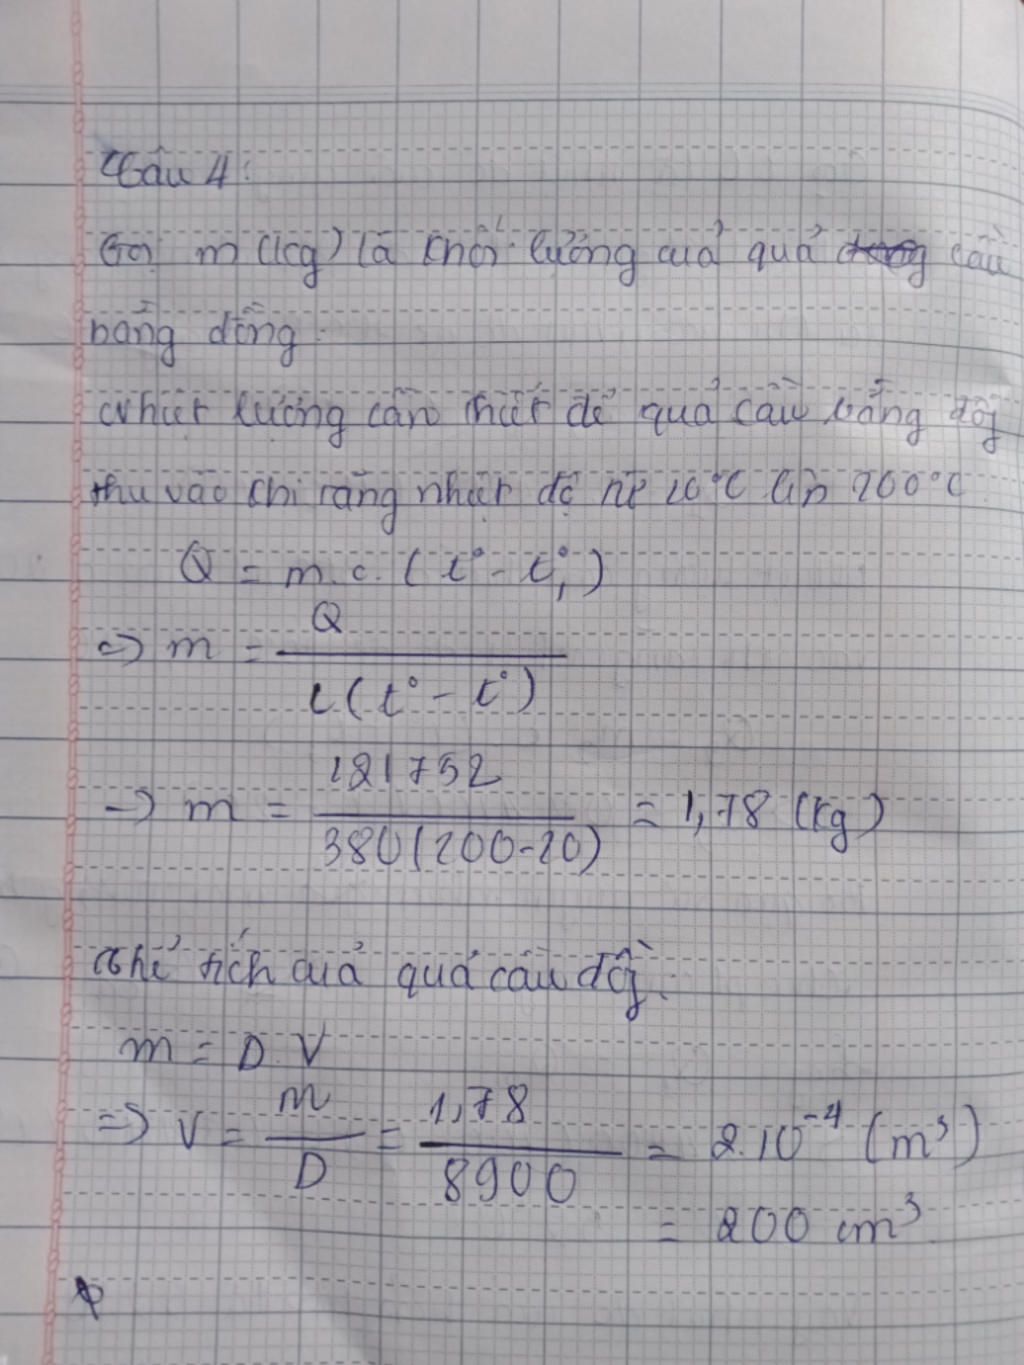 Câu 4:
Gọi m (kg) là khối lượng của quả cầu
bằng đồng.
Nhiệt lượng cần thiết để quả cầu bằng đồg
thu vào khi tăng nhiệt độ từ 20°C lên 200°C
Q = m.c.(t° - t°₁)
=> m = Q / c(t° - t°)
-> m = 121752 / 380(200-20) = 1,78 (kg)
Thể tích của quả cầu đồg.
m = D.V
=> V = m / D = 1,78 / 8900 = 2.10⁻⁴ (m³)
= 200 cm³